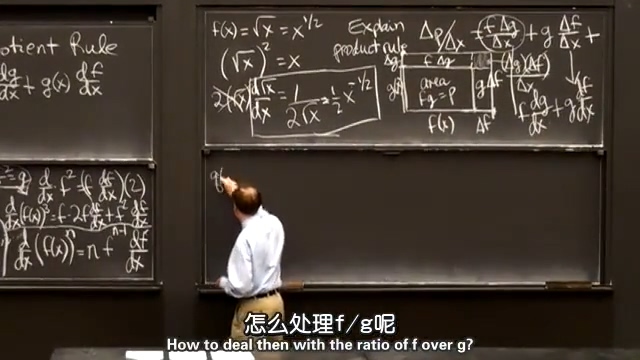 otient Rule
dg/dx + g(x) df/dx
d/dx f² = (f df/dx)(2)
d/dx (f(x))³ = f·2f df/dx + f² df/dx
d/dx (f(x))ⁿ = n fⁿ⁻¹ df/dx
f(x) = √x = x^1/2
(√x)² = x
2(√x) d√x/dx = 1/2√x = 1/2 x^-1/2
Explain
product rule
Δp/Δx = f Δg/Δx + g Δf/Δx +
(Δg)(Δf)/Δx
f dg/dx + g df/dx
Δg
f Δg
g(x)
area
fg = p
g Δf
f(x)
Δf
q
怎么处理f/g呢
How to deal then with the ratio of f over g?